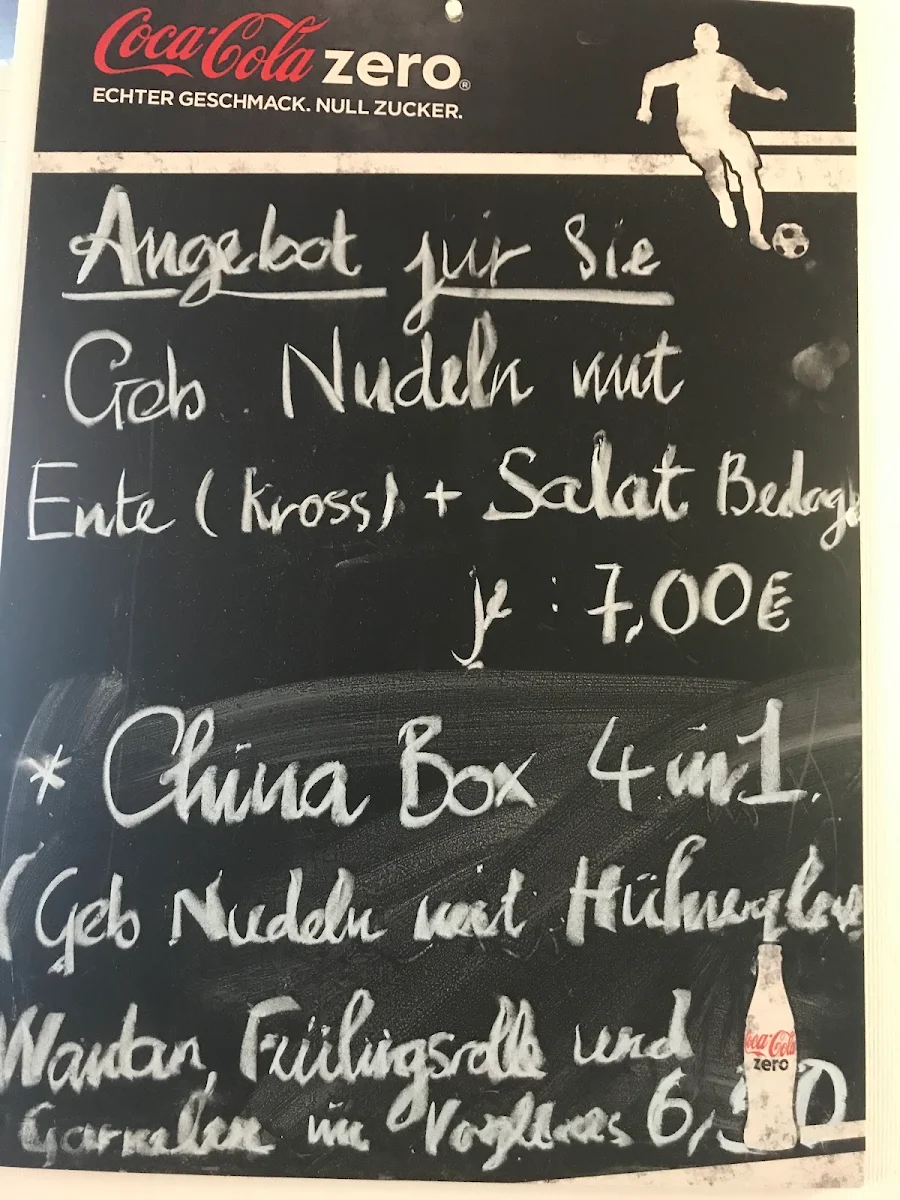 Coca-Cola zero®
ECHTER GESCHMACK. NULL ZUCKER.
Angebot für Sie
Geb Nudeln mit
Ente (Kross) + Salat
je : 7,00€
* China Box 4 in 1.
(Geb Nudeln mit
Wantan, Frühlingsrolle und
Coca-Cola
zero
Garnelen im